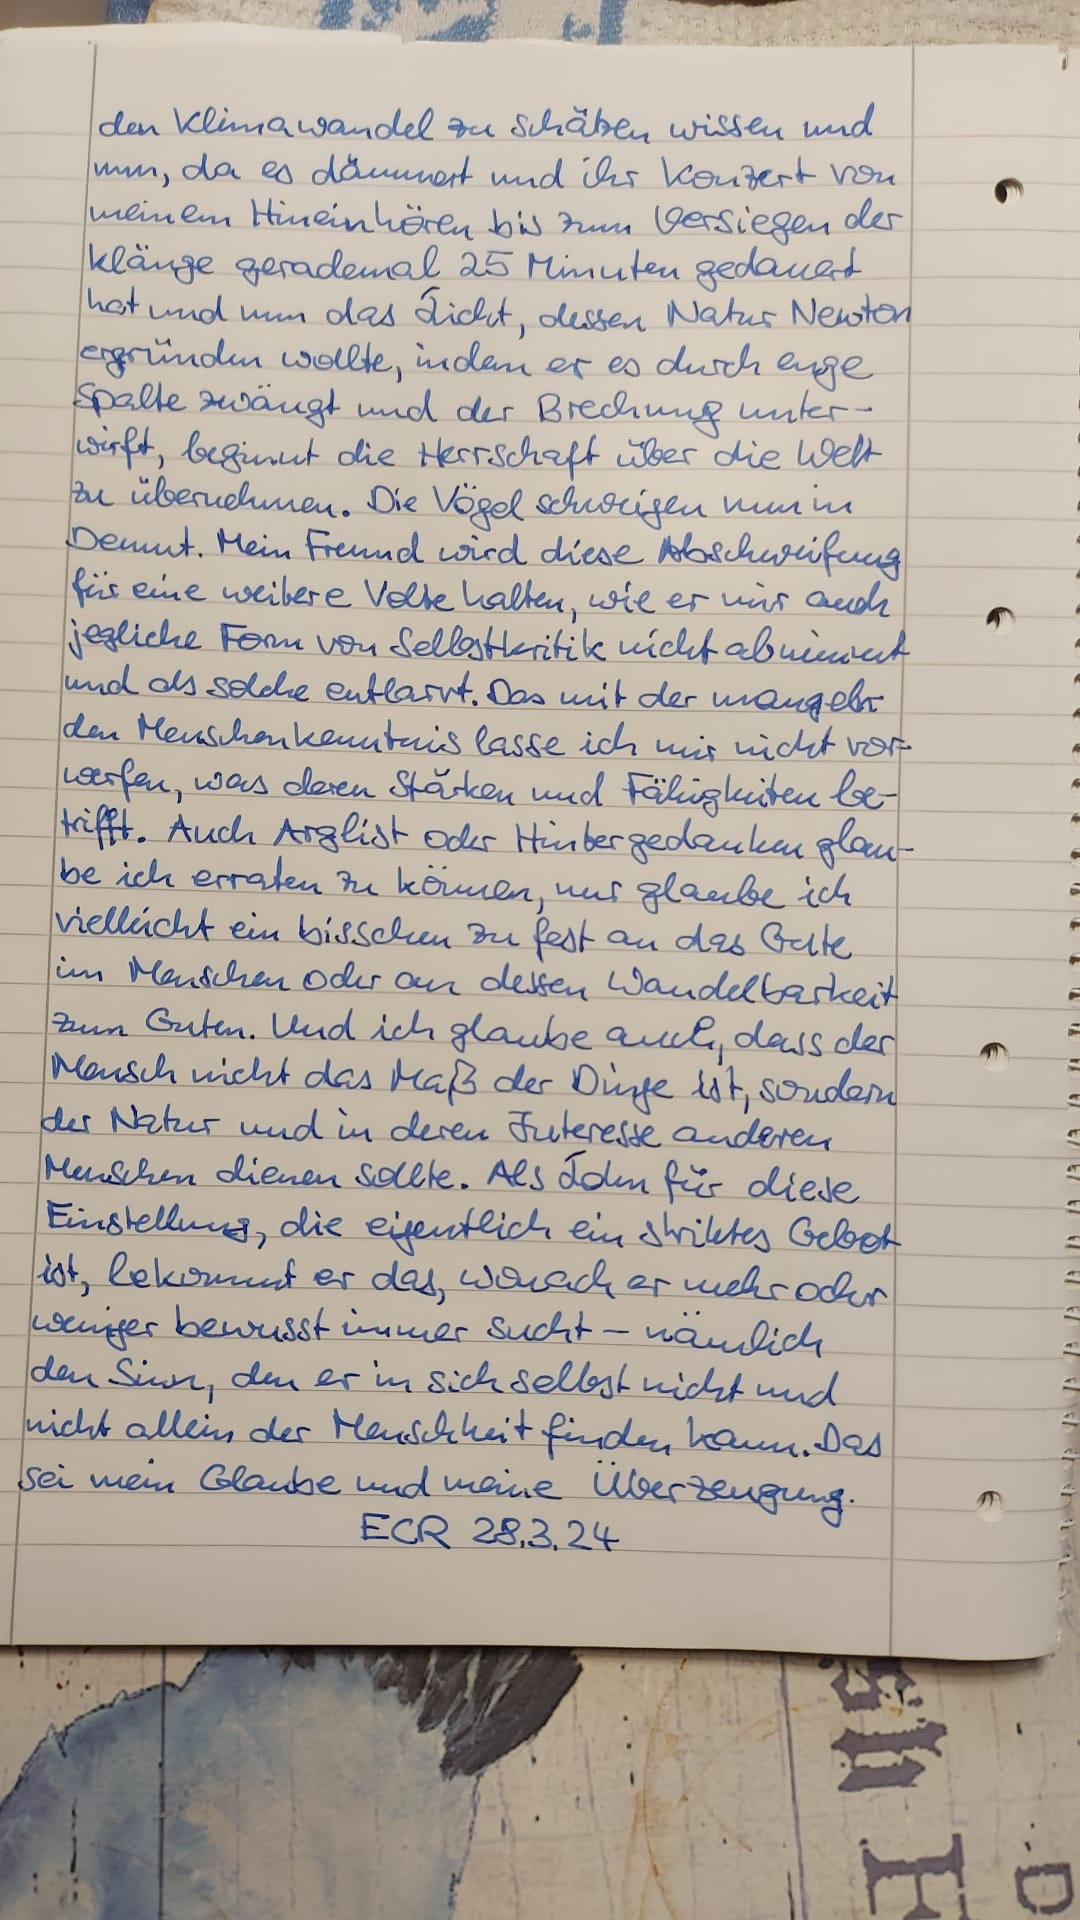 den Klimawandel zu schätzen wissen und
nun, da es dämmert und ihr Konzert von
meinem Hineinhören bis zum Versiegen der
Klänge gerademal 25 Minuten gedauert
hat und nun das Licht, dessen Natur Newton
ergründen wollte, indem er es durch enge
Spalte zwängt und der Brechung unter-
wirft, beginnt die Herrschaft über die Welt
zu übernehmen. Die Vögel schweigen nun in
Demut. Mein Freund wird diese Abschweifung
für eine weitere Volte halten, wie er mir auch
jegliche Form von Selbstkritik nicht abnimmt
und als solche entlarvt. Das mit der mangeln-
den Menschenkenntnis lasse ich mir nicht vor-
werfen, was deren Stärken und Fähigkeiten be-
trifft. Auch Arglist oder Hintergedanken glau-
be ich erraten zu können, nur glaube ich
vielleicht ein bisschen zu fest an das Gute
im Menschen oder an dessen Wandelbarkeit
zum Guten. Und ich glaube auch, dass der
Mensch nicht das Maß der Dinge ist, sondern
der Natur und in deren Interesse anderen
Menschen dienen sollte. Als Lohn für diese
Einstellung, die eigentlich ein striktes Gebot
ist, bekommt er das, wonach er mehr oder
weniger bewusst immer sucht – nämlich
den Sinn, den er in sich selbst nicht und
nicht allein der Menschheit finden kann. Das
sei mein Glaube und meine Überzeugung.
ECR 28.3.24